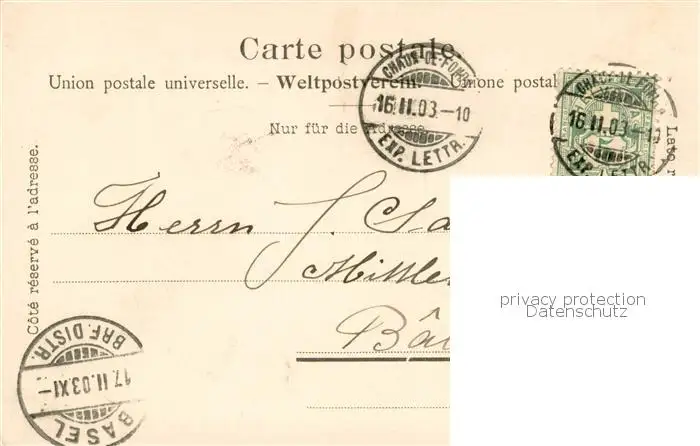 Carte postale.
Union postale universelle. – Weltpostverein. – Unione postal
Nur für die Adresse.
CHAUX-DE-FONDS
16.II.03.-10
EXP. LETTR.
CHAUX-DE-FONDS
16.II.03.-10
EXP. LETTR.
Côté réservé à l'adresse.
Lato r
Herrn J. Sa
Bâ
privacy protection
Datenschutz
BRF. DISTR.
17.II.03.XI-
BASEL